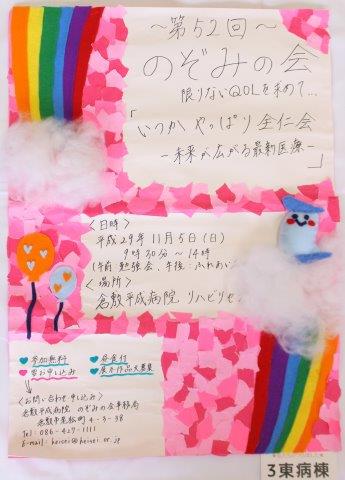 ～第52回～
のぞみの会
限りないQOLを求めて…
「いつか やっぱり 全仁会
－未来が広がる最新医療－」
＜日時＞
平成29年 11月5日(日)
9時30分～14時
(午前 勉強会、午後:ふれあい
＜場所＞
倉敷平成病院 リハビリセ
♥参加無料
♥昼食付
♥要お申し込み
♥展示作品大募集
＜お問い合わせ・申し込み＞
倉敷平成病院 のぞみの会事務局
倉敷市老松町4-3-38
Tel:086-427-1111
E-mail: heisei@heisei.or.jp
3東病棟